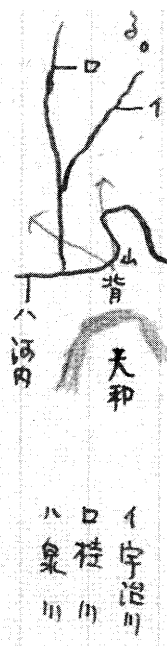 る。
ロ
イ
山背
ハ
河内
大和
イ 宇治川
ロ 桂川
ハ 泉川